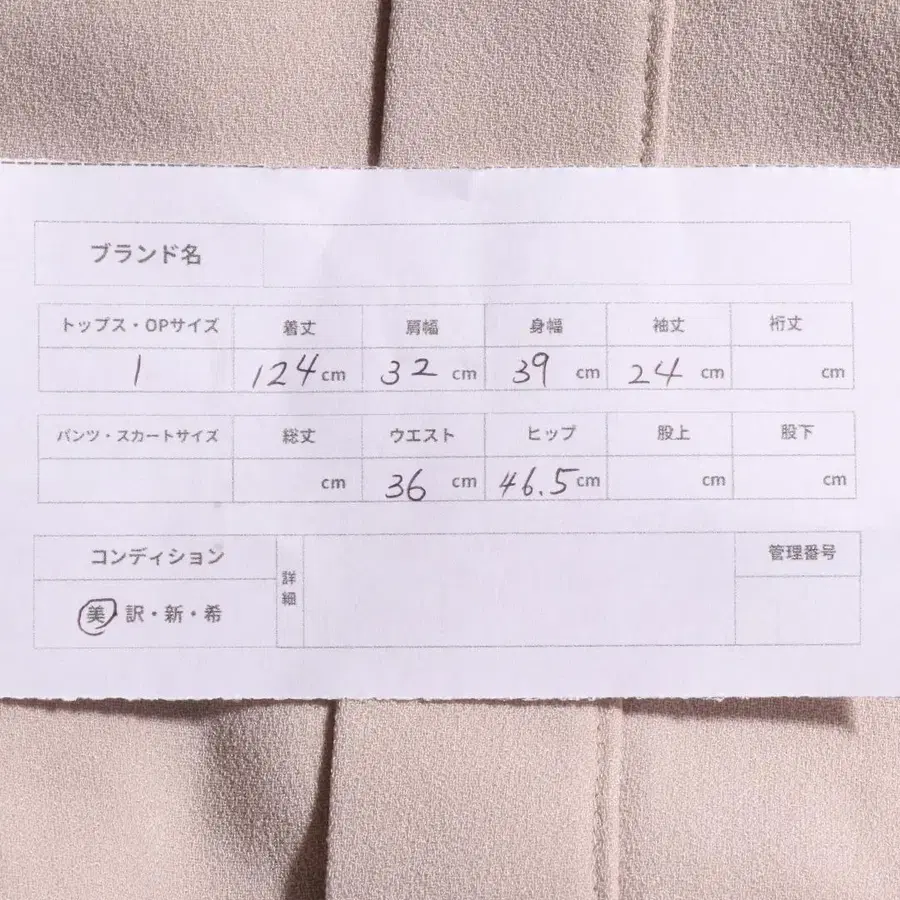 ブランド名
トップス・OPサイズ 着丈 肩幅 身幅 袖丈 裄丈
1 124 cm 32 cm 39 cm 24 cm cm
パンツ・スカートサイズ 総丈 ウエスト ヒップ 股上 股下
cm 36 cm 46.5 cm cm cm
コンディション 詳細 管理番号
美・訳・新・希